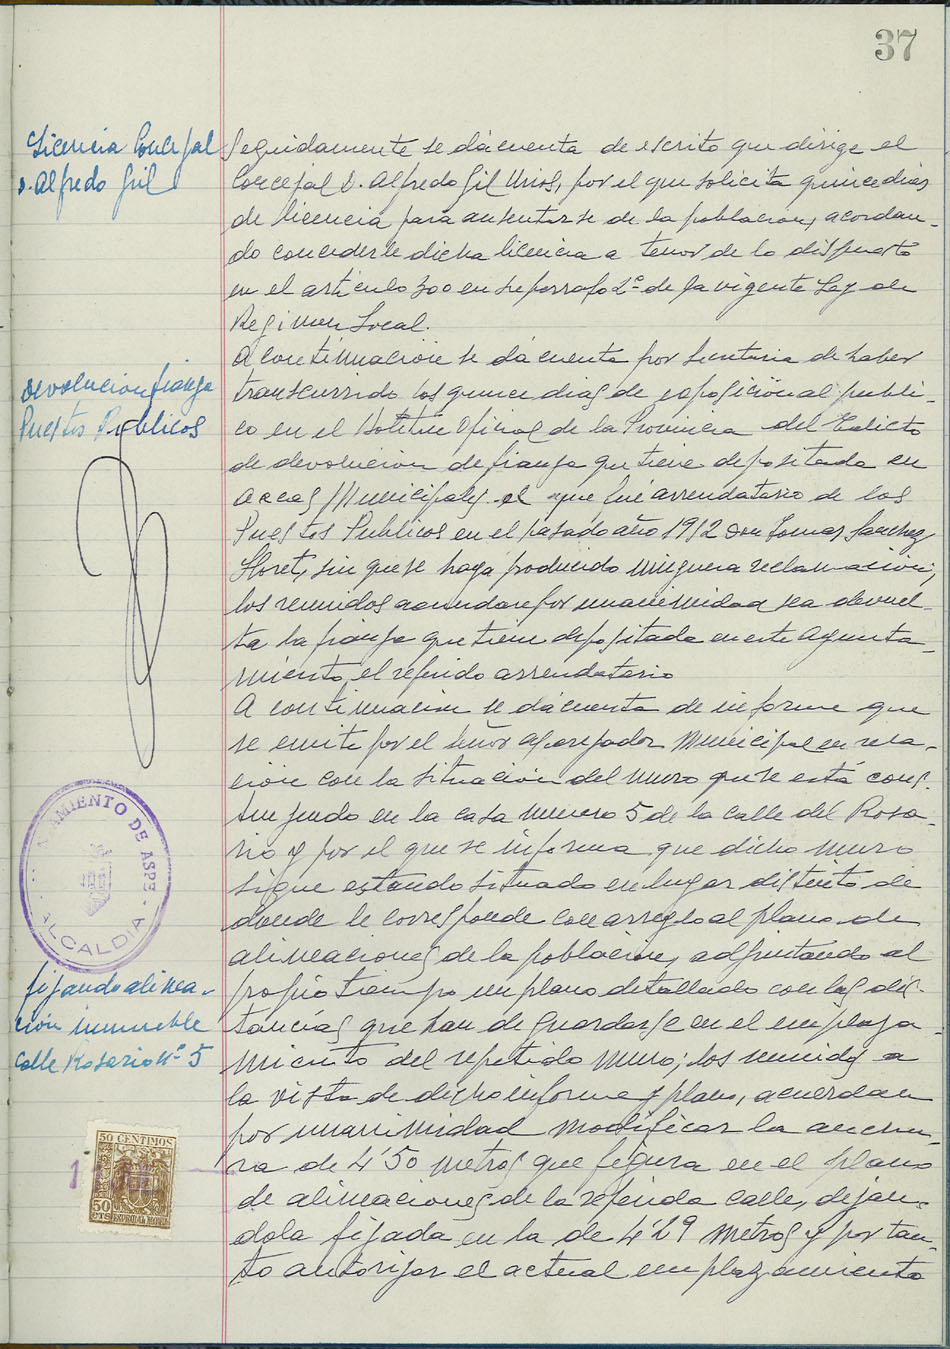 37
Licencia Concejal
D. Alfredo Gil
Seguidamente se dá cuenta de escrito que dirige el
Concejal D. Alfredo Gil Urios, por el que solicita quince dias
de licencia para ausentarse de la poblacion, acordan-
do concederle dicha licencia a tenor de lo dispuesto
en el articulo 300 en su parrafo 2º de la vigente Ley de
Regimen Local.
A continuación se dá cuenta por Secretaria de haber
transcurrido los quince dias de esposición al publi-
co en el Boletin Oficial de la Provincia del Edicto
de devolucion de fianza que tiene depositada en
arcas Municipales el que fué arrendatario de los
Puestos Publicos en el pasado año 1952 don Tomas Sanchez
Lloret, sin que se haya producido ninguna reclamacion,
los reunidos acuerdan por unanimidad sea devuel-
ta la fianza que tiene depositada en este Ayunta-
miento, el referido arrendatario
Devolucion fianza
Puestos Publicos
A continuacion se dá cuenta de informe que
se emite por el señor aparejador Municipal en rela-
cion con la situacion del muro que se está cons-
truyendo en la casa numero 5 de la calle del Rosa-
rio y por el que se informa que dicho muro
sigue estando situado en lugar distinto de
donde le corresponde con arreglo al plano de
alineaciones de la poblacion, adjuntando al
propio tiempo un plano detallado con las dis-
tancias que han de guardarse en el emplaza-
miento del repetido muro; los reunidos a
la vista de dicho informe y plano, acuerdan
por unanimidad modificar la anchu-
ra de 4'50 metros que figura en el plano
de alineaciones de la referida calle, dejan-
dola fijada en la de 4'29 metros y por tan-
to autorizar el actual emplazamiento
AYUNTAMIENTO DE ASPE
ALCALDIA
fijando alinea-
ción inmueble
Calle Rosario nº 5
50 CENTIMOS
50
CTS
ESPECIAL MOVIL